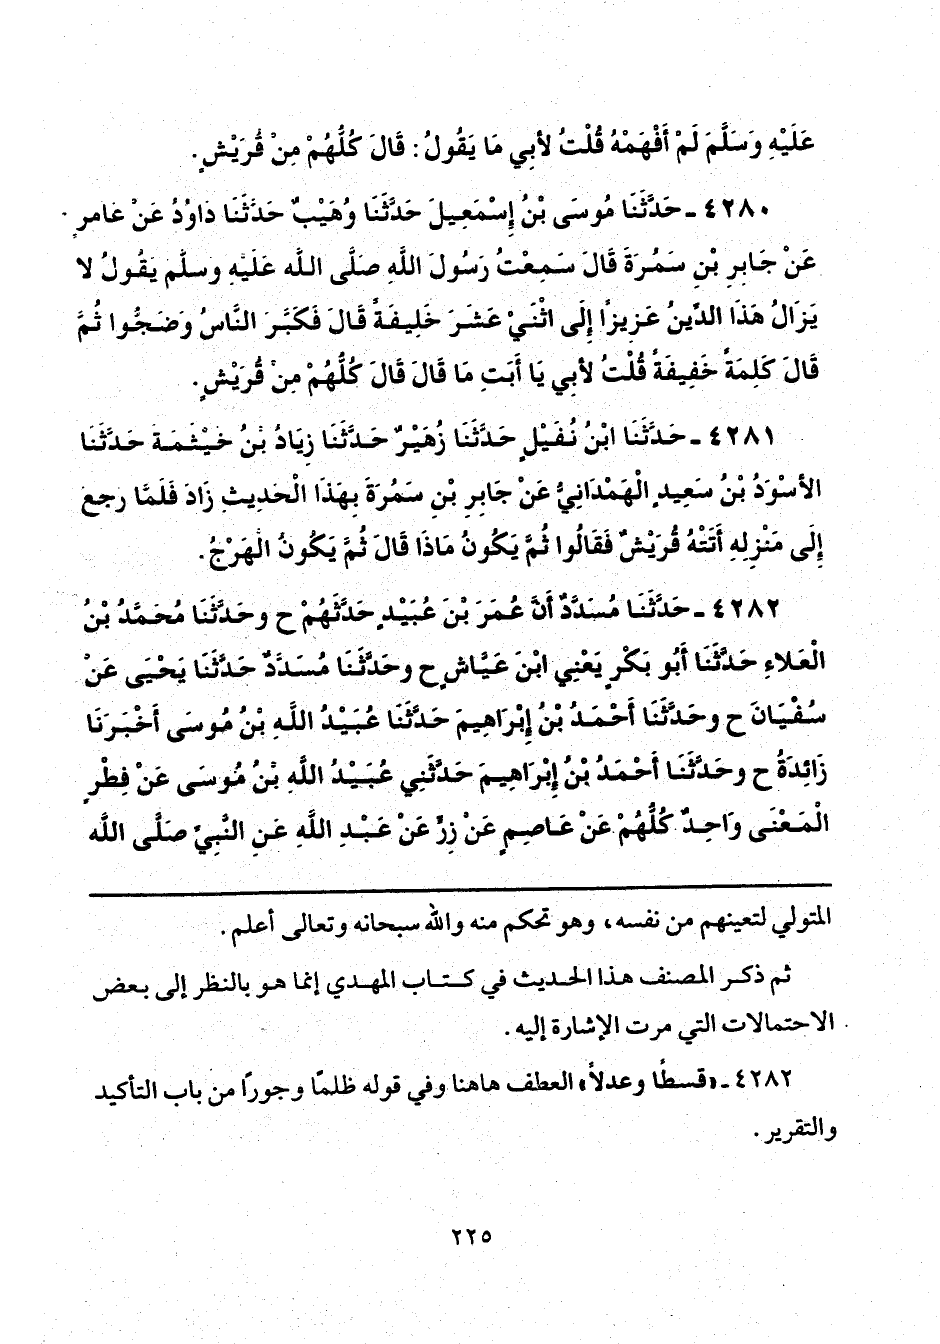 عَلَيْهِ وَسَلَّمَ لَمْ أَفْهَمْهُ قُلْتُ لأبي مَا يَقُولُ : قَالَ كُلُّهُمْ مِنْ قُرَيْشٍ .
٤٢٨٠ ـ حَدَّثَنَا مُوسَى بْنُ إِسْمَعِيلَ حَدَّثَنَا وُهَيْبٌ حَدَّثَنَا دَاوُدُ عَنْ عَامرٍ
عَنْ جَابِرِ بْنِ سَمُرَةَ قَالَ سَمِعْتُ رَسُولَ اللهِ صَلَّى اللَّه عَلَيْهِ وسَلَّم يقُولُ لا
يَزَالُ هَذَا الدِّينُ عَزِيزًا إِلَى اثْنَيْ عَشَرَ خَلِيفَةً قَالَ فَكَبَّرَ النَّاسُ وَضَجُّوا ثُمَّ
قَالَ كَلِمَةً خَفِيفَةً قُلْتُ لأبي يَا أَبَتِ مَا قَالَ قَالَ كُلُّهُمْ مِنْ قُرَيْشٍ .
٤٢٨١ ـ حَدَّثَنَا ابْنُ نُفَيْلٍ حَدَّثَنَا زُهَيْرٌ حَدَّثَنَا زِيَادُ بْنُ خَيْثَمَةَ حَدَّثَنَا
الأسْوَدُ بْنُ سَعِيدٍ الْهَمْدَانِيُّ عَنْ جَابِرِ بْنِ سَمُرَةَ بِهَذَا الْحَدِيثِ زَادَ فَلَمَّا رجعَ
إِلَى مَنْزِلِهِ أَتَتْهُ قُرَيْشٌ فَقَالُوا ثُمَّ يَكُونُ مَاذَا قَالَ ثُمَّ يَكُونُ الْهَرْجُ .
٤٢٨٢ ـ حَدَّثَنَا مُسَدَّدٌ أَنَّ عُمَرَ بْنَ عُبَيْدٍ حَدَّثَهُمْ ح وحَدَّثَنَا مُحَمَّدُ بْنُ
الْعَلاءِ حَدَّثَنَا أَبُو بَكْرٍ يَعْنِي ابْنَ عَيَّاشٍ ح وحَدَّثَنَا مُسَدَّدٌ حَدَّثَنَا يَحْيَى عَنْ
سُفْيَانَ ح وحَدَّثَنَا أَحْمَدُ بْنُ إِبْرَاهِيمَ حَدَّثَنَا عُبَيْدُ اللَّهِ بْنُ مُوسَى أَخْبَرَنَا
زَائِدَةُ ح وحَدَّثَنَا أَحْمَدُ بْنُ إِبْرَاهِيمَ حَدَّثَنِي عُبَيْدُ اللَّهِ بْنُ مُوسَى عَنْ فِطْرٍ
الْمَعْنَى وَاحِدٌ كُلُّهُمْ عَنْ عَاصِمٍ عَنْ زِرٍّ عَنْ عَبْدِ اللَّهِ عَنِ النَّبِيِّ صَلَّى اللَّه
المتولي لتعينهم من نفسه، وهو تحكم منه والله سبحانه وتعالى أعلم .
ثم ذكر المصنف هذا الحديث في كتاب المهدي إنما هو بالنظر إلى بعض
الاحتمالات التي مرت الإشارة إليه .
٤٢٨٢ ـ «قسطًا وعدلاً» العطف هاهنا وفي قوله ظلمًا وجورًا من باب التأكيد
والتقرير .
٢٢٥